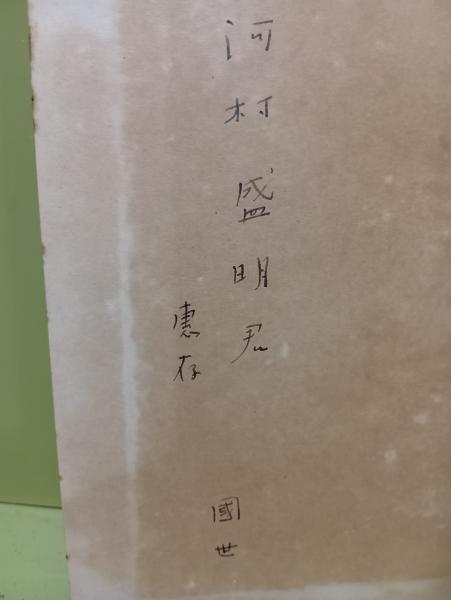 河村盛明君
惠存
國世